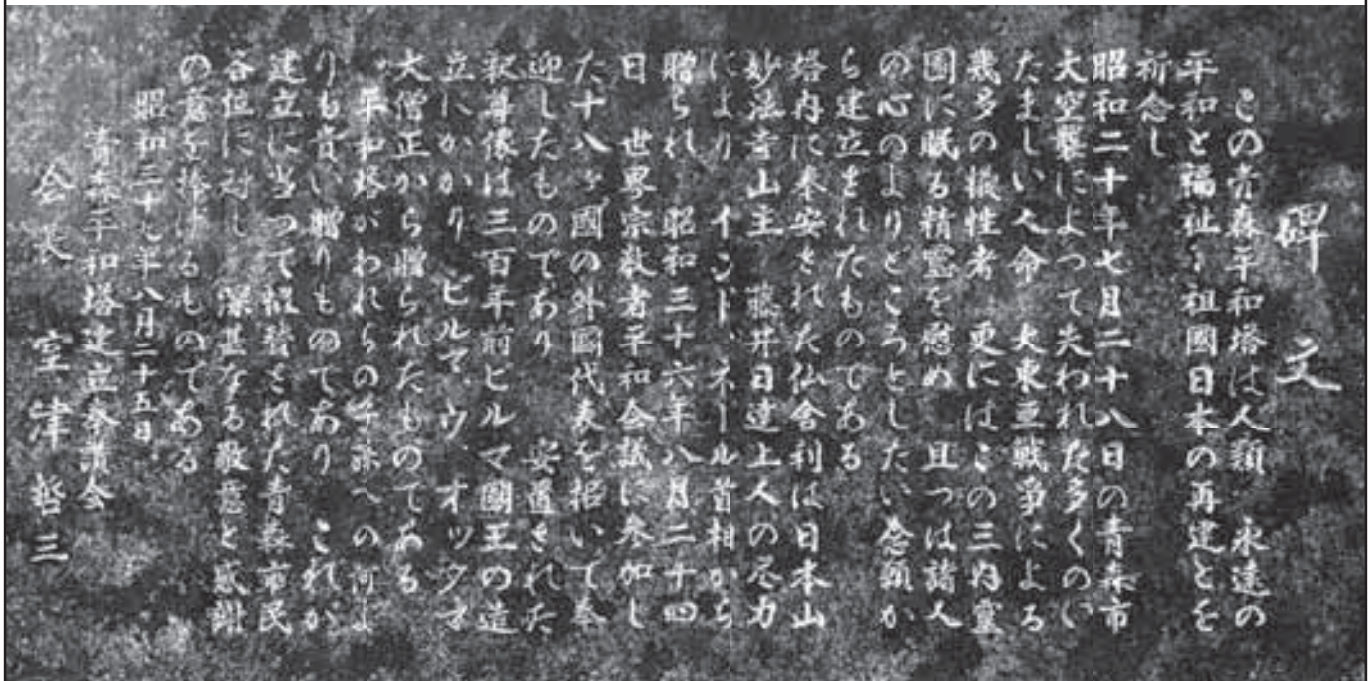 碑文
この青森平和塔は人類 永遠の
平和と福祉と祖國日本の再建とを
祈念し
昭和二十年七月二十八日の青森市
大空襲によって失われた多くのい
たましい人命 大東亜戦争による
幾多の犠牲者 更にはこの三内霊
園に眠る精霊を慰め 且つは諸人
の心のよりどころとしたい念願か
ら建立をれたものである
塔内に奉安された仏舎利は日本山
妙法寺山主 藤井日達上人の尽力
により インド、ネール首相から
贈られ 昭和三十六年八月二十四
日 世界宗教者平和会議に参加し
た十八ヶ國の外國代表を招いて奉
迎したものであり 安置された
釈尊像は三百年前ビルマ國王の造
立にかかり ビルマ、ウ、オッタオ
大僧正から贈られたものである
平和塔がわれらの子孫への何よ
りも貴い贈りものであり これが
建立に当つて協賛された青森市民
各位に対し 深甚なる敬意と感謝
の意を捧げるものである
昭和三十七年八月二十五日
青森平和塔建立奉讃会
会長 室津哲三